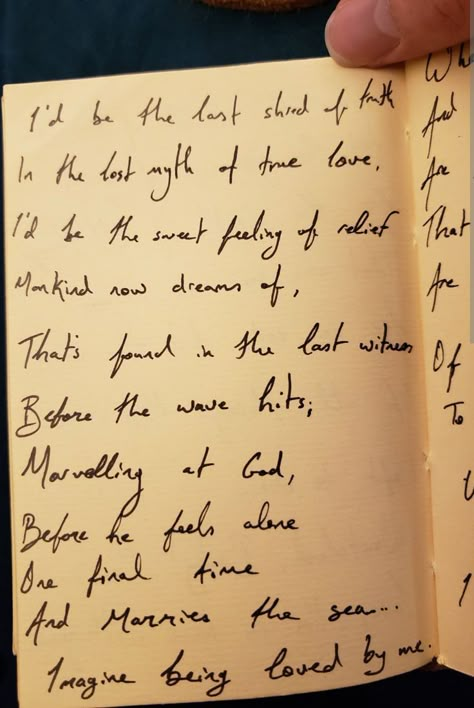 I'd be the last shred of truth
In the lost myth of true love,
I'd be the sweet feeling of relief
Mankind now dreams of,
That's found in the last witness
Before the wave hits;
Marvelling at God,
Before he feels alone
One final time
And Marries the sea...
Imagine being loved by me.
And
Are
That
Are
Of
To